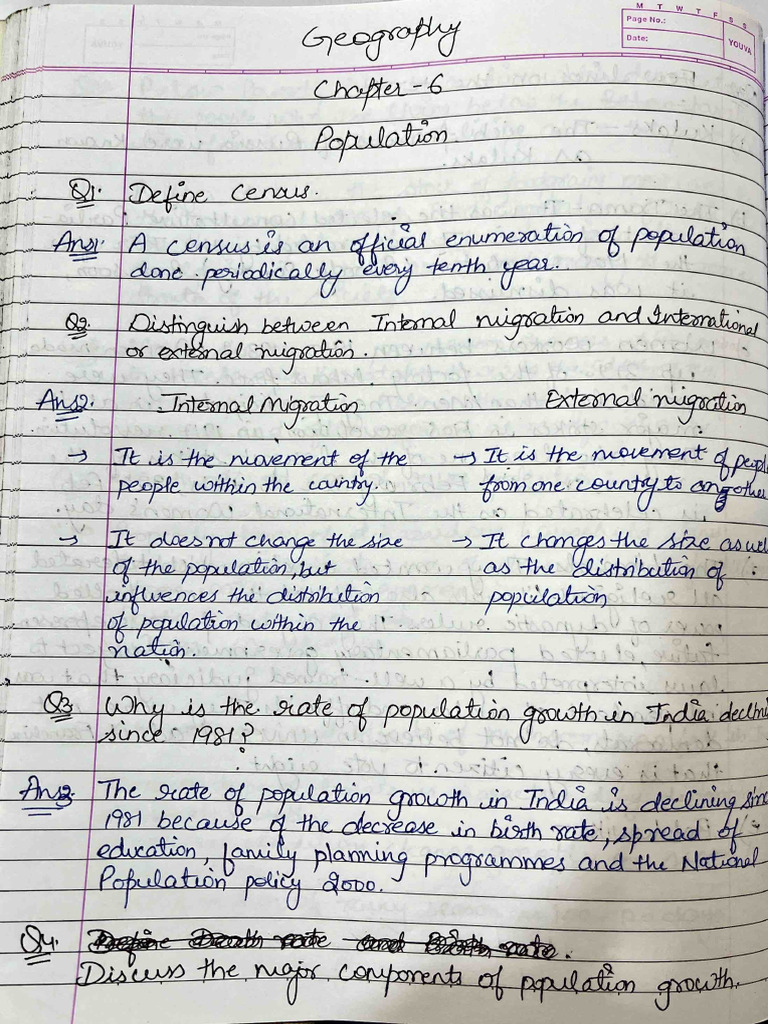 M T W T F S S
Page No.:
Date:
YOUVA
Geography
Chapter - 6
Population
Q1. Define Census.
Ans1. A census is an official enumeration of population
done periodically every tenth year.
Q2. Distinguish between Internal migration and International
or external migration.
Ans2. Internal Migration External migration
→ It is the movement of the → It is the movement of people
people within the country. from one country to another
→ It does not change the size → It changes the size as wel
of the population, but as the distribution of
influences the distribution population
of population within the
nation.
Q3 Why is the rate of population growth in India declini
since 1981?
Ans3. The rate of population growth in India is declining sinc
1981 because of the decrease in birth rate, spread of
education, family planning programmes and the National
Population policy 2000.
Q4. Define Death rate and Birth rate.
Discuss the major components of population growth.